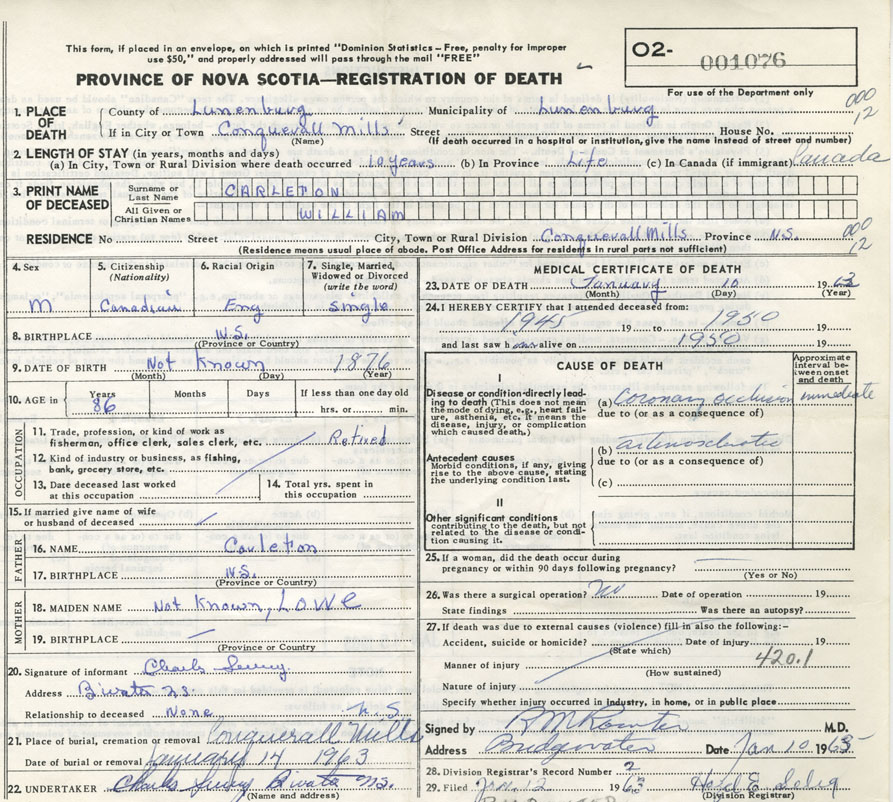 This form, if placed in an envelope, on which is printed "Dominion Statistics – Free, penalty for improper
use $50," and properly addressed will pass through the mail "FREE"
PROVINCE OF NOVA SCOTIA—REGISTRATION OF DEATH
O2- 001076
For use of the Department only
000
12
1. PLACE OF DEATH County of Lunenburg Municipality of Lunenburg
If in City or Town Conquerall Mills Street House No.
(Name) (If death occurred in a hospital or institution, give the name instead of street and number)
2. LENGTH OF STAY (in years, months and days)
(a) In City, Town or Rural Division where death occurred 10 years (b) In Province Life (c) In Canada (if immigrant) Canada
3. PRINT NAME OF DECEASED Surname or Last Name CARLETON
All Given or Christian Names WILLIAM
000
12
RESIDENCE No Street City, Town or Rural Division Conquerall Mills Province N.S.
(Residence means usual place of abode. Post Office Address for residents in rural parts not sufficient)
4. Sex 5. Citizenship (Nationality) 6. Racial Origin 7. Single, Married, Widowed or Divorced (write the word)
M Canadian Eng Single
8. BIRTHPLACE N.S.
(Province or Country)
9. DATE OF BIRTH Not Known 1876
(Month) (Day) (Year)
10. AGE in Years Months Days If less than one day old
86 hrs. or min.
OCCUPATION
11. Trade, profession, or kind of work as
fisherman, office clerk, sales clerk, etc. Retired
12. Kind of industry or business, as fishing,
bank, grocery store, etc.
13. Date deceased last worked at this occupation 14. Total yrs. spent in this occupation
15. If married give name of wife
or husband of deceased
FATHER
16. NAME Carleton
17. BIRTHPLACE N.S.
(Province or Country)
MOTHER
18. MAIDEN NAME Not Known, LOWE
19. BIRTHPLACE
(Province or Country)
20. Signature of informant Charls
Address
Relationship to deceased None N.S.
21. Place of burial, cremation or removal Conquerall Mills
Date of burial or removal January 14 1963
22. UNDERTAKER Charls N.S.
(Name and address)
MEDICAL CERTIFICATE OF DEATH
23. DATE OF DEATH January 10 1963
(Month) (Day) (Year)
24. I HEREBY CERTIFY that I attended deceased from:
1945 19 to 1950 19
and last saw h im alive on 1950 19
CAUSE OF DEATH
Approximate interval between onset and death
I
Disease or condition-directly leading to death (This does not mean the mode of dying, e.g., heart failure, asthenia, etc. It means the disease, injury, or complication which caused death.)
(a) Coronary occlusion immediate
due to (or as a consequence of)
Antecedent causes
Morbid conditions, if any, giving rise to the above cause, stating the underlying condition last.
(b) arteriosclerotic
due to (or as a consequence of)
(c)
II
Other significant conditions
contributing to the death, but not related to the disease or condition causing it.
25. If a woman, did the death occur during
pregnancy or within 90 days following pregnancy?
(Yes or No)
26. Was there a surgical operation? No Date of operation 19
State findings Was there an autopsy?
27. If death was due to external causes (violence) fill in also the following:–
Accident, suicide or homicide? Date of injury 19
(State which)
Manner of injury 420.1
(How sustained)
Nature of injury
Specify whether injury occurred in industry, in home, or in public place
Signed by M.D.
Address Bridgewater Date Jan 10 1963
28. Division Registrar's Record Number 2
29. Filed Jan. 12 1963
(Division Registrar)